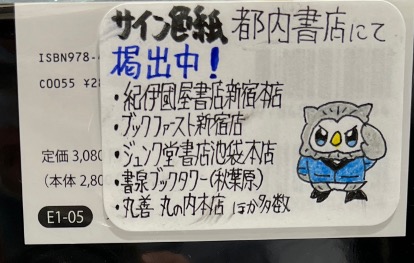 サイン色紙 都内書店にて
掲出中!
・紀伊國屋書店新宿本店
・ブックファースト新宿店
・ジュンク堂書店池袋本店
・書泉ブックタワー(秋葉原)
・丸善 丸の内本店 ほか多数
ISBN978-
C0055 ¥28
定価 3,080
(本体 2,80
E1-05